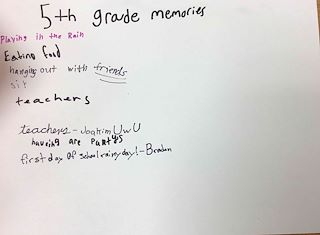 5th grade memories
Playing in the Rain
Eating food
hanging out with friends
teachers
teachers - Joakim UwU
having are partys
first day of school rainy day! - Braden